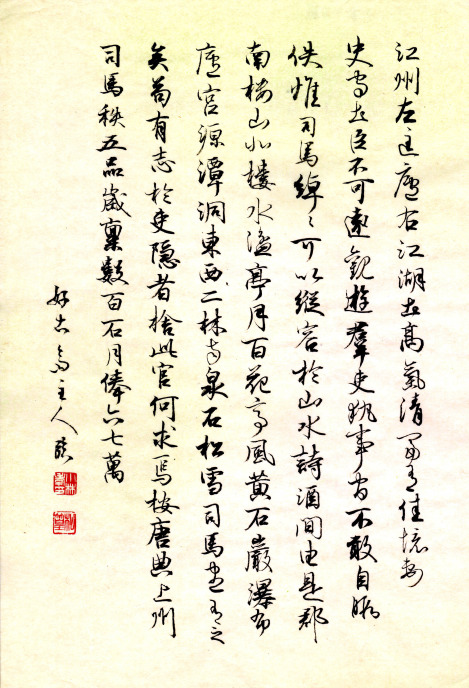 江州左匡廬右江湖土高氣清富有佳境刺
史守土臣不可遠觀遊羣吏執事官不敢自暇
佚惟司馬綽々可以縱容於山水詩酒間由是郡
南樓山北樓水湓亭月百花亭風黄石巖瀑布
廬宮源潭洞東西二林寺泉石松雪司馬盡有之
矣苟有志於吏隱者捨此官何求焉按唐典上州
司馬秩五品歲廩數百石月俸六七萬
好古斋主人